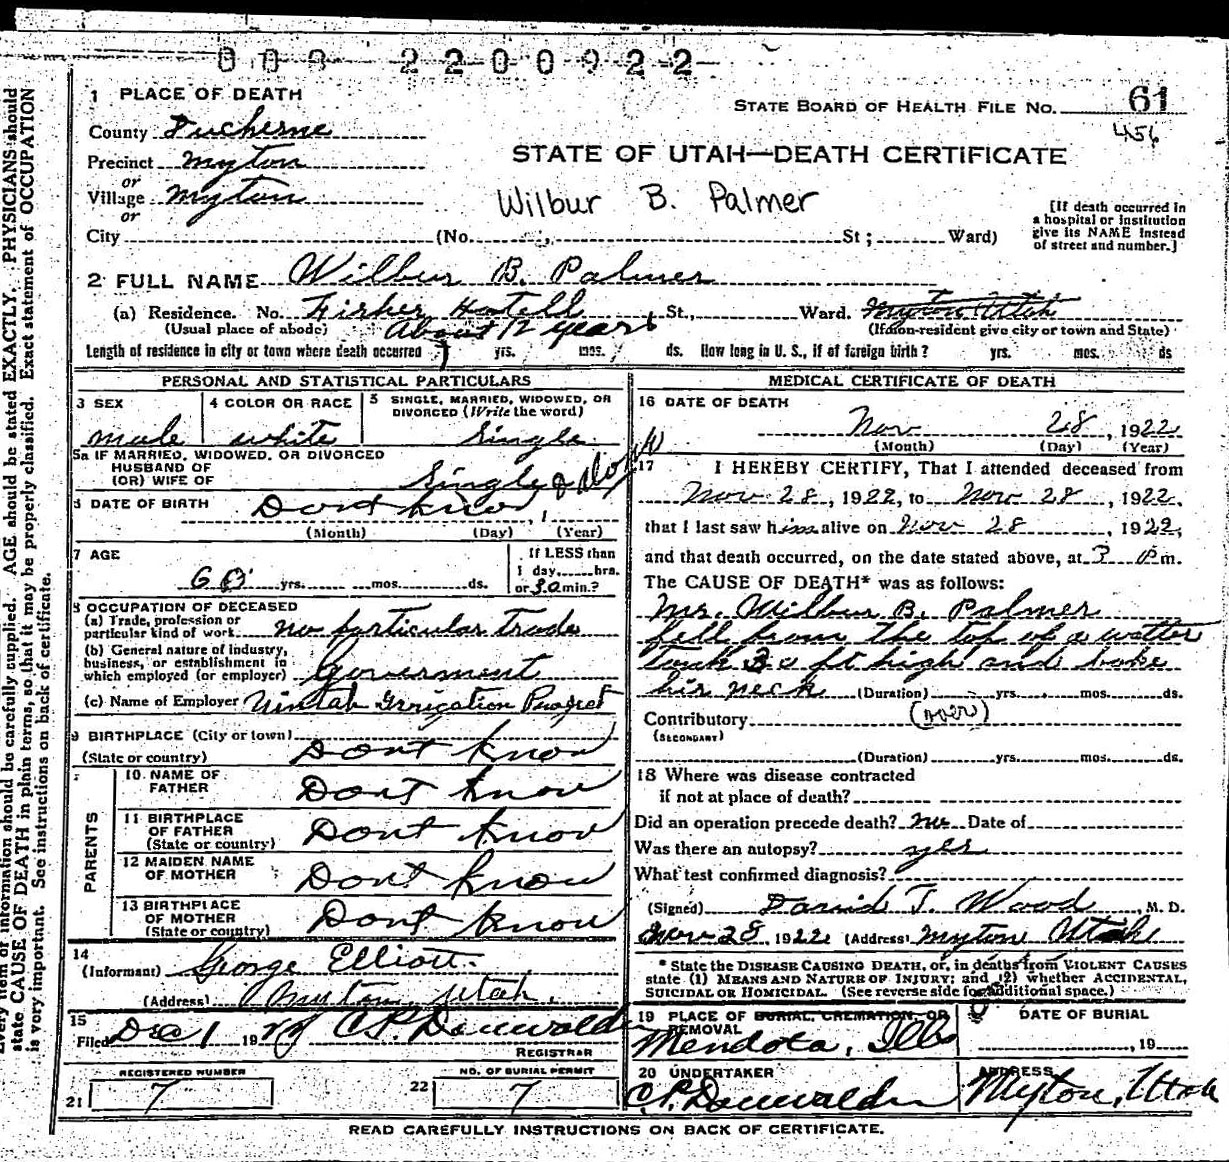 008 2200922
1 PLACE OF DEATH
STATE BOARD OF HEALTH FILE NO. 61
County Duchesne
456
Precinct Myton
STATE OF UTAH—DEATH CERTIFICATE
or
Village Myton
Wilbur B. Palmer
or
[If death occurred in
a hospital or institution
give its NAME instead
of street and number.]
City (No. St; Ward)
2 FULL NAME Wilbur B. Palmer
(a) Residence. No. Fisher Hotell St., Ward. Myton Utah
(Usual place of abode) About 12 years (If non-resident give city or town and State)
Length of residence in city or town where death occurred yrs. mos. ds. How long in U. S., if of foreign birth? yrs. mos. ds
PERSONAL AND STATISTICAL PARTICULARS
3 SEX
male
4 COLOR OR RACE
white
5 SINGLE, MARRIED, WIDOWED, OR
DIVORCED (Write the word)
Single
5a IF MARRIED, WIDOWED, OR DIVORCED
HUSBAND OF
(OR) WIFE OF Single
6 DATE OF BIRTH Dont know
(Month) (Day) (Year)
7 AGE
If LESS than
1 day, hrs.
or 30 min.?
yrs. mos. ds.
8 OCCUPATION OF DECEASED
(a) Trade, profession or
particular kind of work no particular Trade
(b) General nature of industry,
business, or establishment in
which employed (or employer) Goverment
(c) Name of Employer Uintah Irrigation Project
9 BIRTHPLACE (City or town)
(State or country) Dont know
PARENTS
10 NAME OF
FATHER Dont know
11 BIRTHPLACE
OF FATHER
(State or country) Dont know
12 MAIDEN NAME
OF MOTHER Dont know
13 BIRTHPLACE
OF MOTHER
(State or country) Dont know
14
(Informant) George Elliott
(Address) Myton, Utah.
15
Filed Dec 1 19 C.P. Dauwalder
REGISTRAR
REGISTERED NUMBER
21 7
NO. OF BURIAL PERMIT
22 7
MEDICAL CERTIFICATE OF DEATH
16 DATE OF DEATH
Nov 28, 1922
(Month) (Day) (Year)
17 I HEREBY CERTIFY, That I attended deceased from
Nov 28, 1922, to Nov 28, 1922,
that I last saw him alive on Nov 28, 1922,
and that death occurred, on the date stated above, at 3 P m.
The CAUSE OF DEATH* was as follows:
Mr. Wilbur B. Palmer
fell from the top of a watter
tank 30 ft high and boke
his neck (Duration) yrs. mos. ds.
Contributory (over)
(SECONDARY)
(Duration) yrs. mos. ds.
18 Where was disease contracted
if not at place of death?
Did an operation precede death? no Date of
Was there an autopsy? yes
What test confirmed diagnosis?
(Signed) David T. Wood, M. D.
Nov 28, 1922 (Address) Myton Utah
* State the DISEASE CAUSING DEATH, or, in deaths from VIOLENT CAUSES
state (1) MEANS AND NATURE OF INJURY; and (2) whether ACCIDENTAL,
SUICIDAL OR HOMICIDAL. (See reverse side for additional space.)
19 PLACE OF BURIAL, CREMATION, OR
REMOVAL
Mendota, Ills
DATE OF BURIAL
, 19
20 UNDERTAKER
C.P. Dauwalder
ADDRESS
Myton, Utah
READ CAREFULLY INSTRUCTIONS ON BACK OF CERTIFICATE.
Every item of information should be carefully supplied. AGE should be stated EXACTLY. PHYSICIANS should
state CAUSE OF DEATH in plain terms, so that it may be properly classified. Exact statement of OCCUPATION
is very important. See instructions on back of certificate.